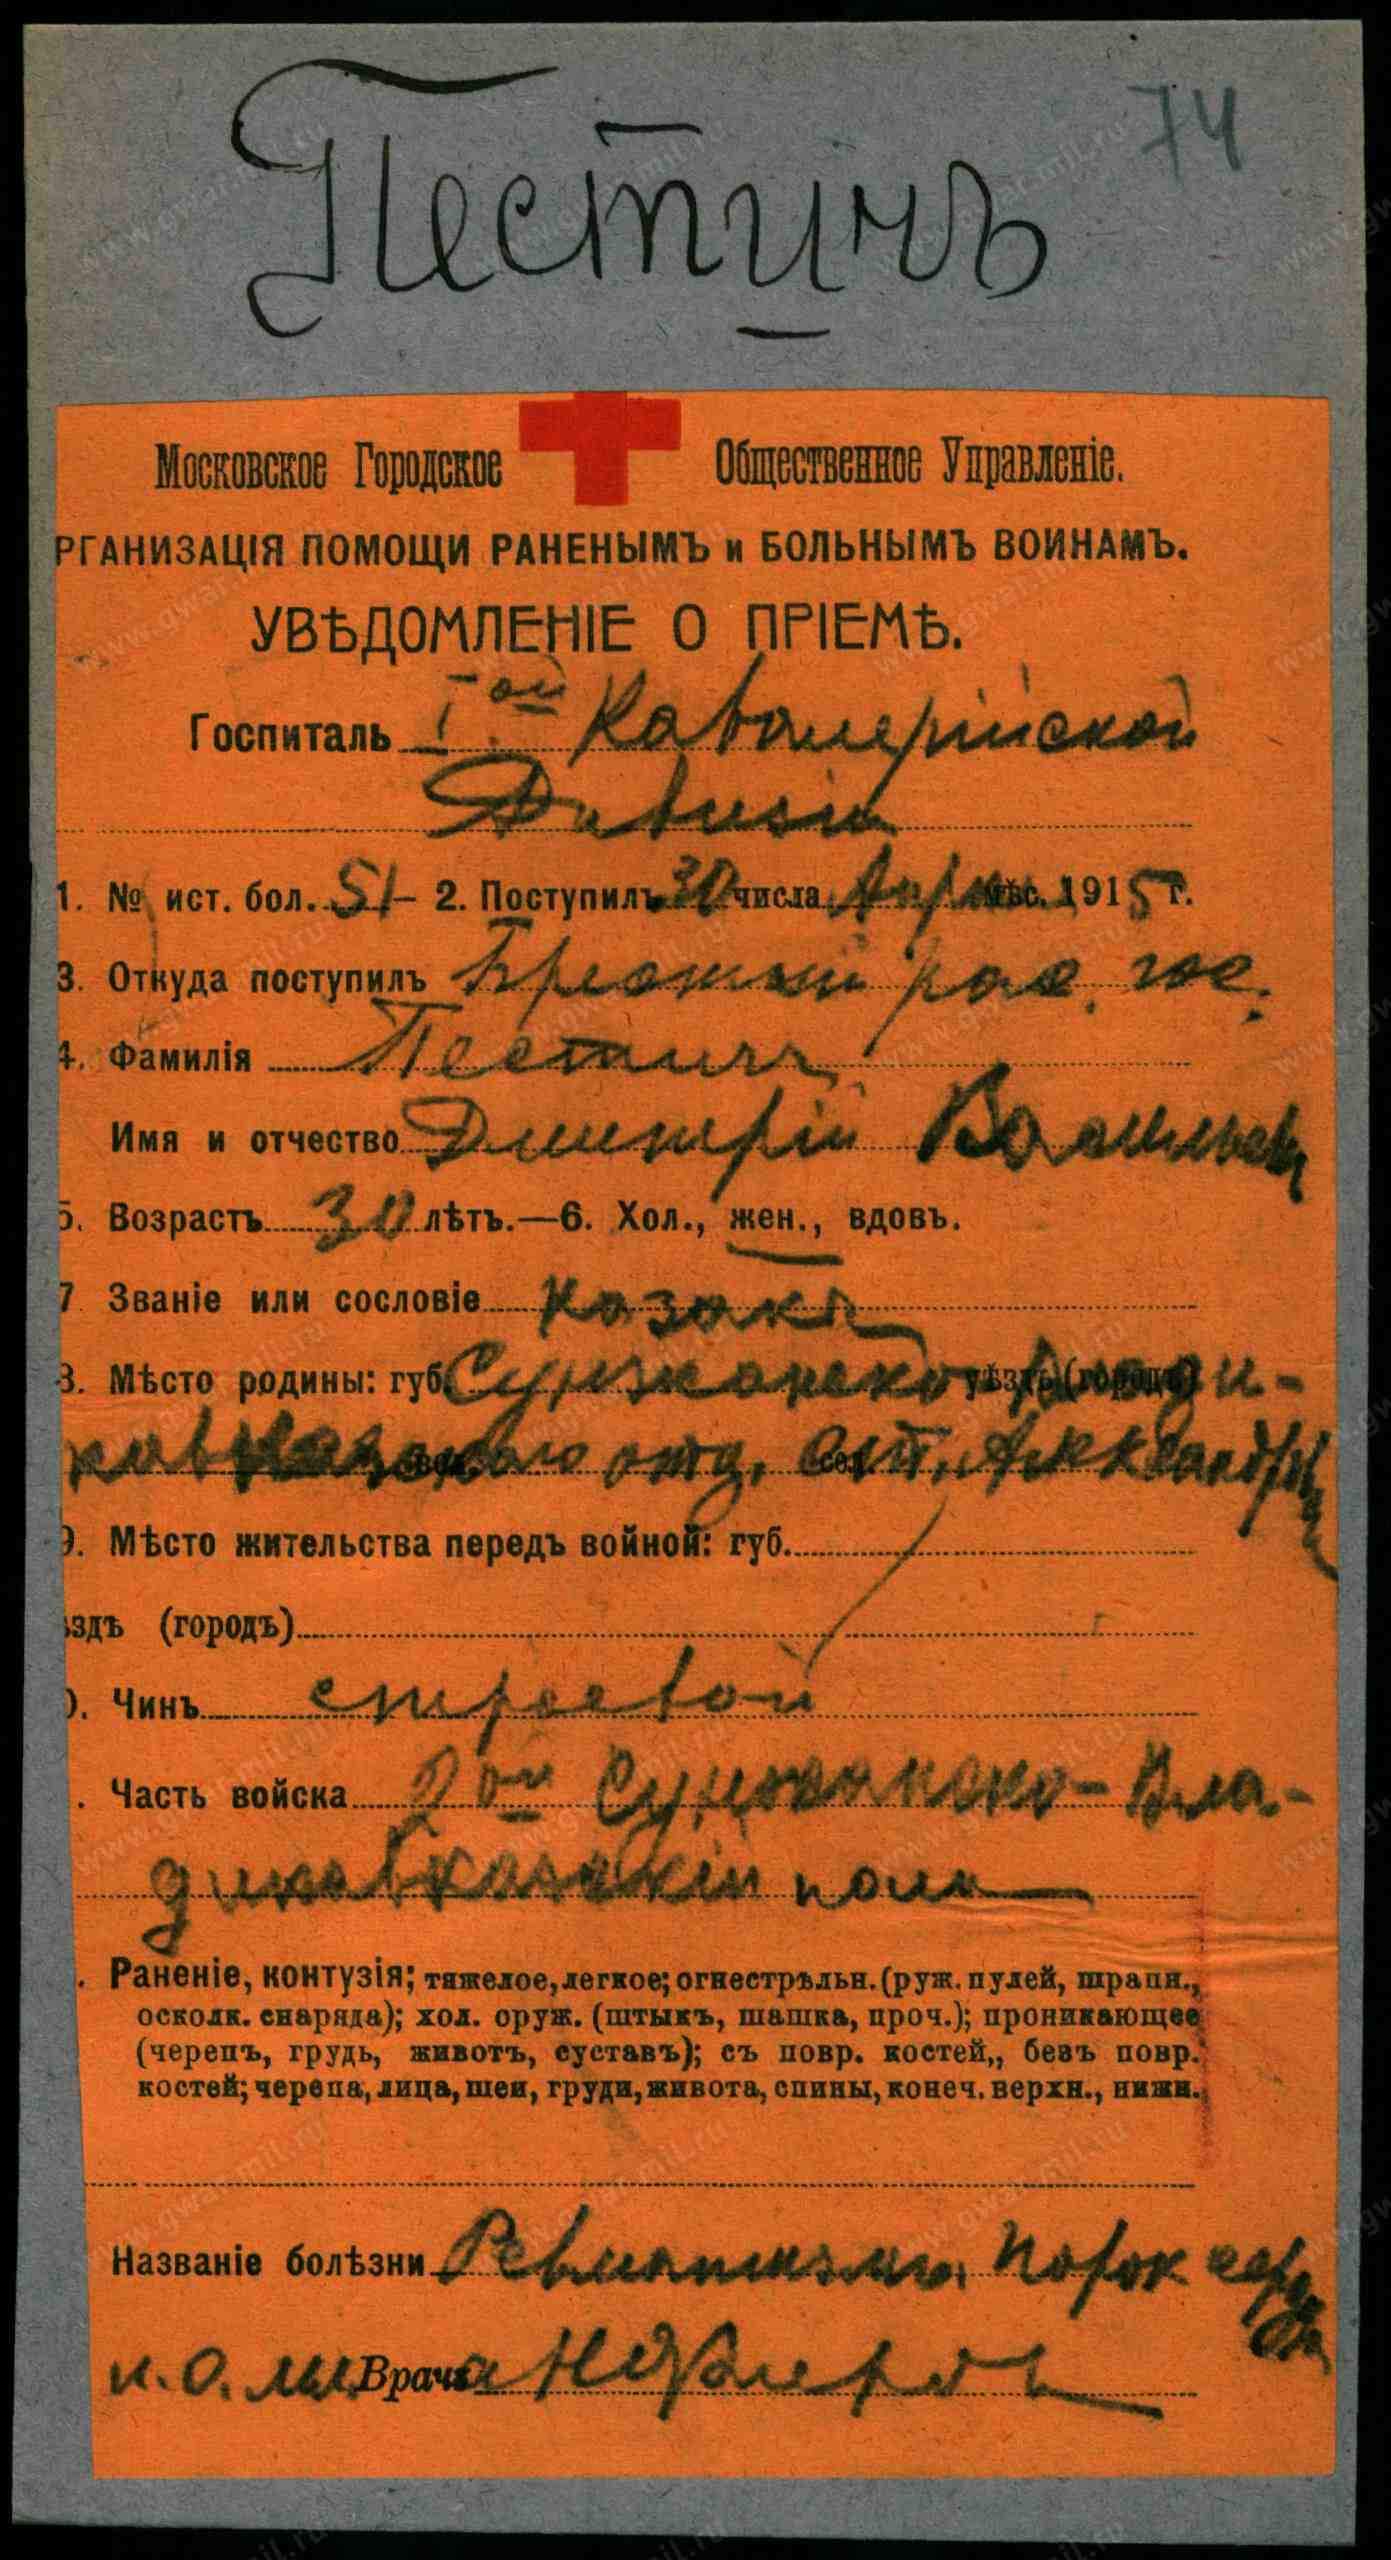 74
Пестичъ
Московское Городское Общественное Управленіе.
РГАНИЗАЦІЯ ПОМОЩИ РАНЕНЫМЪ и БОЛЬНЫМЪ ВОИНАМЪ.
УВѢДОМЛЕНІЕ О ПРІЕМѢ.
Госпиталь I ой Кавалерійской
Дивизіи
1. № ист. бол. 51 – 2. Поступилъ 30 числа Апрѣля мѣс. 1915 г.
3. Откуда поступилъ рас. гос.
4. Фамилія Пестичъ
Имя и отчество Дмитрій Васильев
5. Возрастъ 30 лѣтъ.—6. Хол., жен., вдовъ.
7. Званіе или сословіе казакъ
8. Мѣсто родины: губ. Сунжанско уѣздъ (городъ) Влади-
кавказскаго вол. отд. сел. ст. Александрій
9. Мѣсто жительства передъ войной: губ.
ѣздъ (городъ)
0. Чинъ строевой
. Часть войска 2 ой Сунжанско-Вла-
дикавказскій полк
. Раненіе, контузія; тяжелое, легкое; огнестрѣльн. (руж. пулей, шрапн.,
осколк. снаряда); хол. оруж. (штыкъ, шашка, проч.); проникающее
(черепъ, грудь, животъ, суставъ); съ повр. костей,, безъ повр.
костей; черепа, лица, шеи, груди, живота, спины, конеч. верхн., нижн.
Названіе болѣзни Ревматизмъ, порок сердца
и. о. мл. Врача